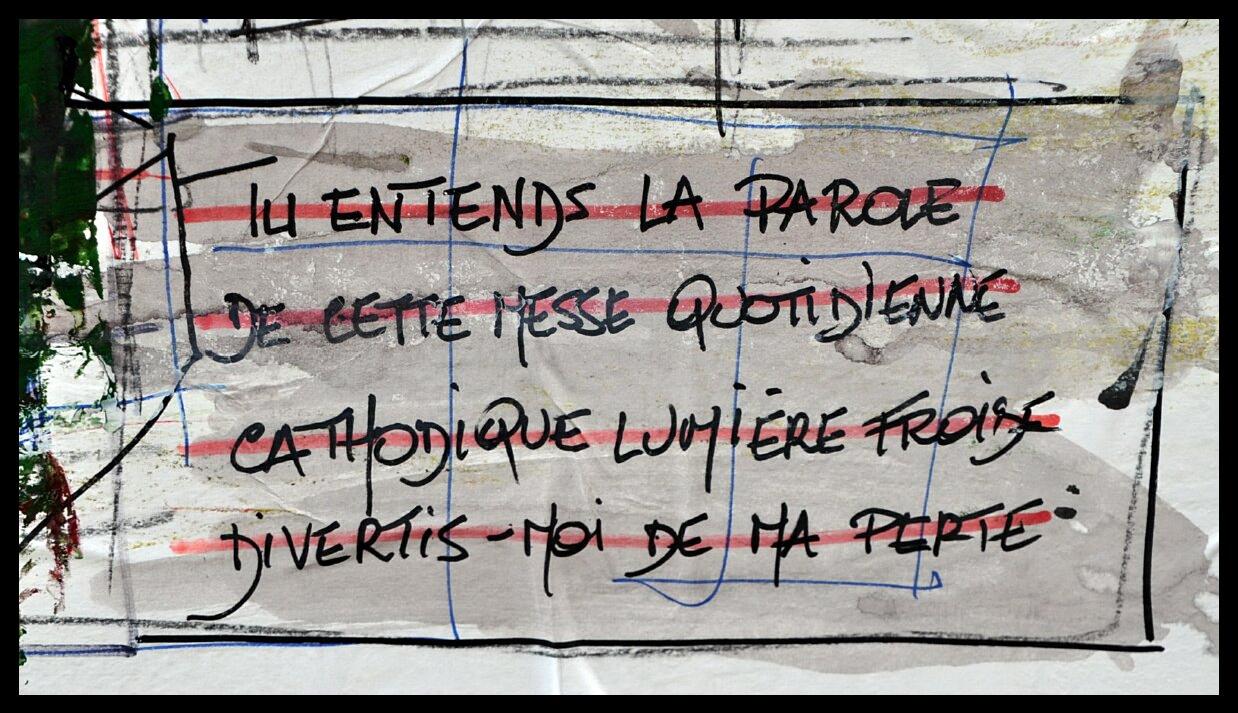 TU ENTENDS LA PAROLE
DE CETTE MESSE QUOTIDIENNE
CATHODIQUE LUMIÈRE FROIDE
DIVERTIS-MOI DE MA PERTE